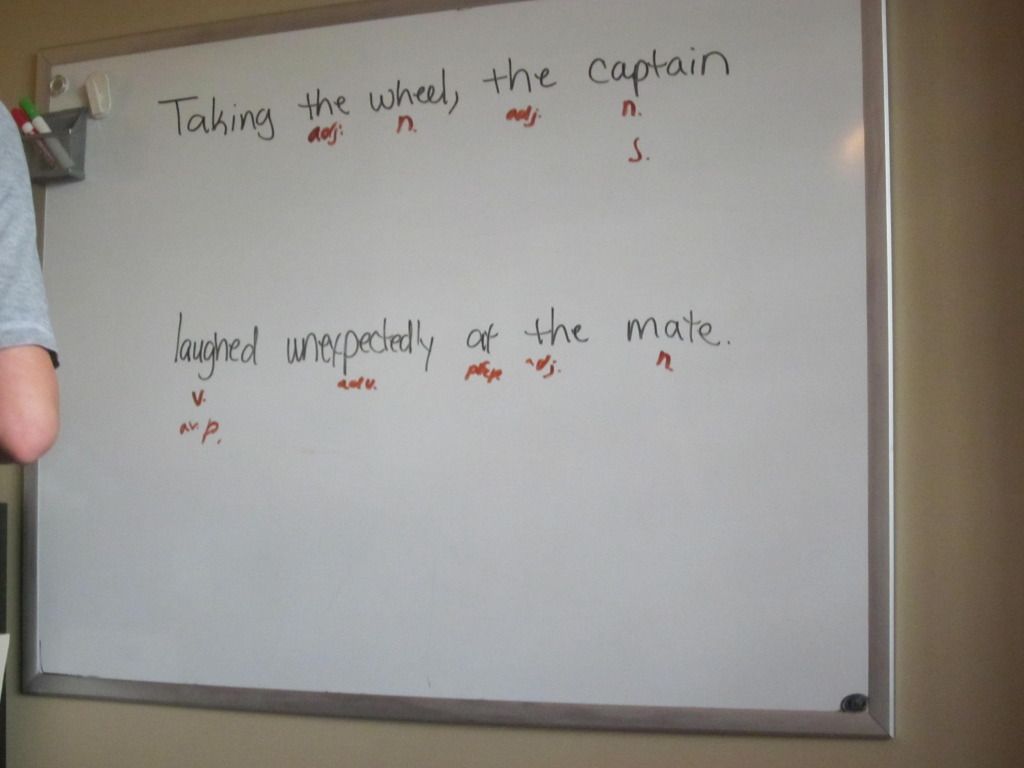 Taking the wheel, the captain
adj. n. adj. n.
S.
laughed unexpectedly at the mate.
v. adv. prep adj. n
av. p.